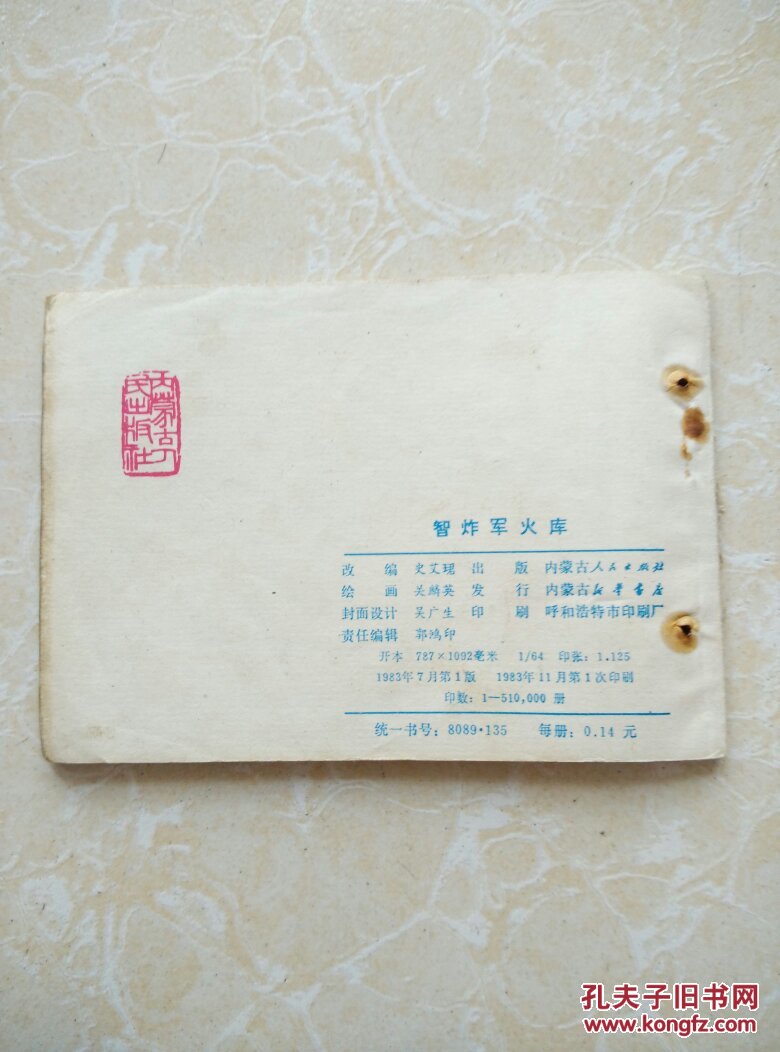 内蒙古人
民出版社
智炸军火库
改 编 史艾琨 出 版 内蒙古人民出版社
绘 画 关麟英 发 行 内蒙古新华书店
封面设计 吴广生 印 刷 呼和浩特市印刷厂
责任编辑 郭鸿印
开本 787×1092毫米 1/64 印张：1.125
1983年7月第1版 1983年11月第1次印刷
印数：1—510,000 册
统一书号：8089·135 每册：0.14 元
孔夫子旧书网
www.kongfz.com